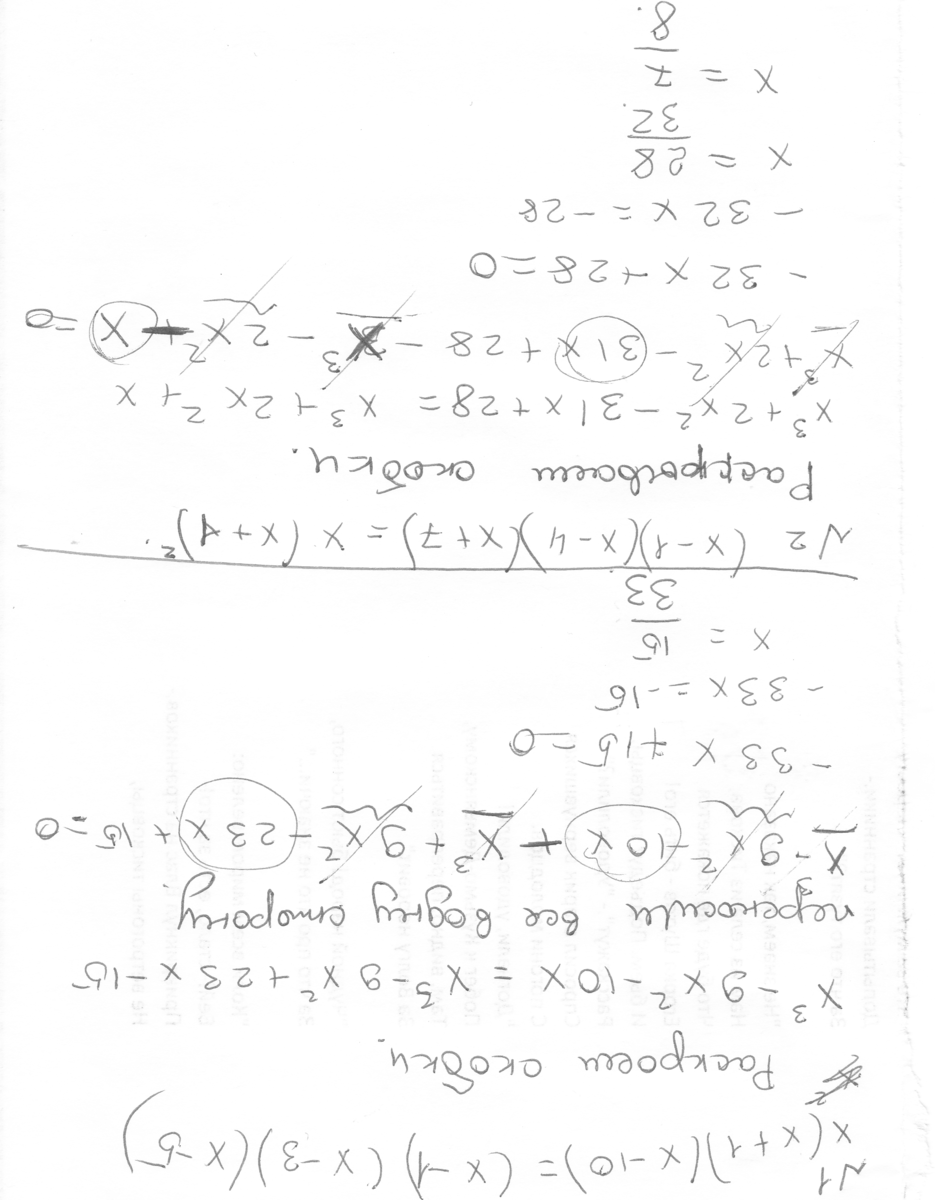 №1
x(x+1)(x-10) = (x-1)(x-3)(x-5)
Раскроем скобки.
x³ - 9x² - 10x = x³ - 9x² + 23x - 15
переносим все водну сторону.
x³ - 9x² - 10x + x³ + 9x² - 23x + 15 = 0
- 33x + 15 = 0
- 33x = -15
x = 15/33
№2 (x-1)(x-4)(x+7) = x(x+1)².
Раскрываем скобки.
x³ + 2x² - 31x + 28 = x³ + 2x² + x
x³ + 2x² - 31x + 28 - x³ - 2x² - x = 0
- 32x + 28 = 0
- 32x = -28
x = 28/32.
x = 7/8.